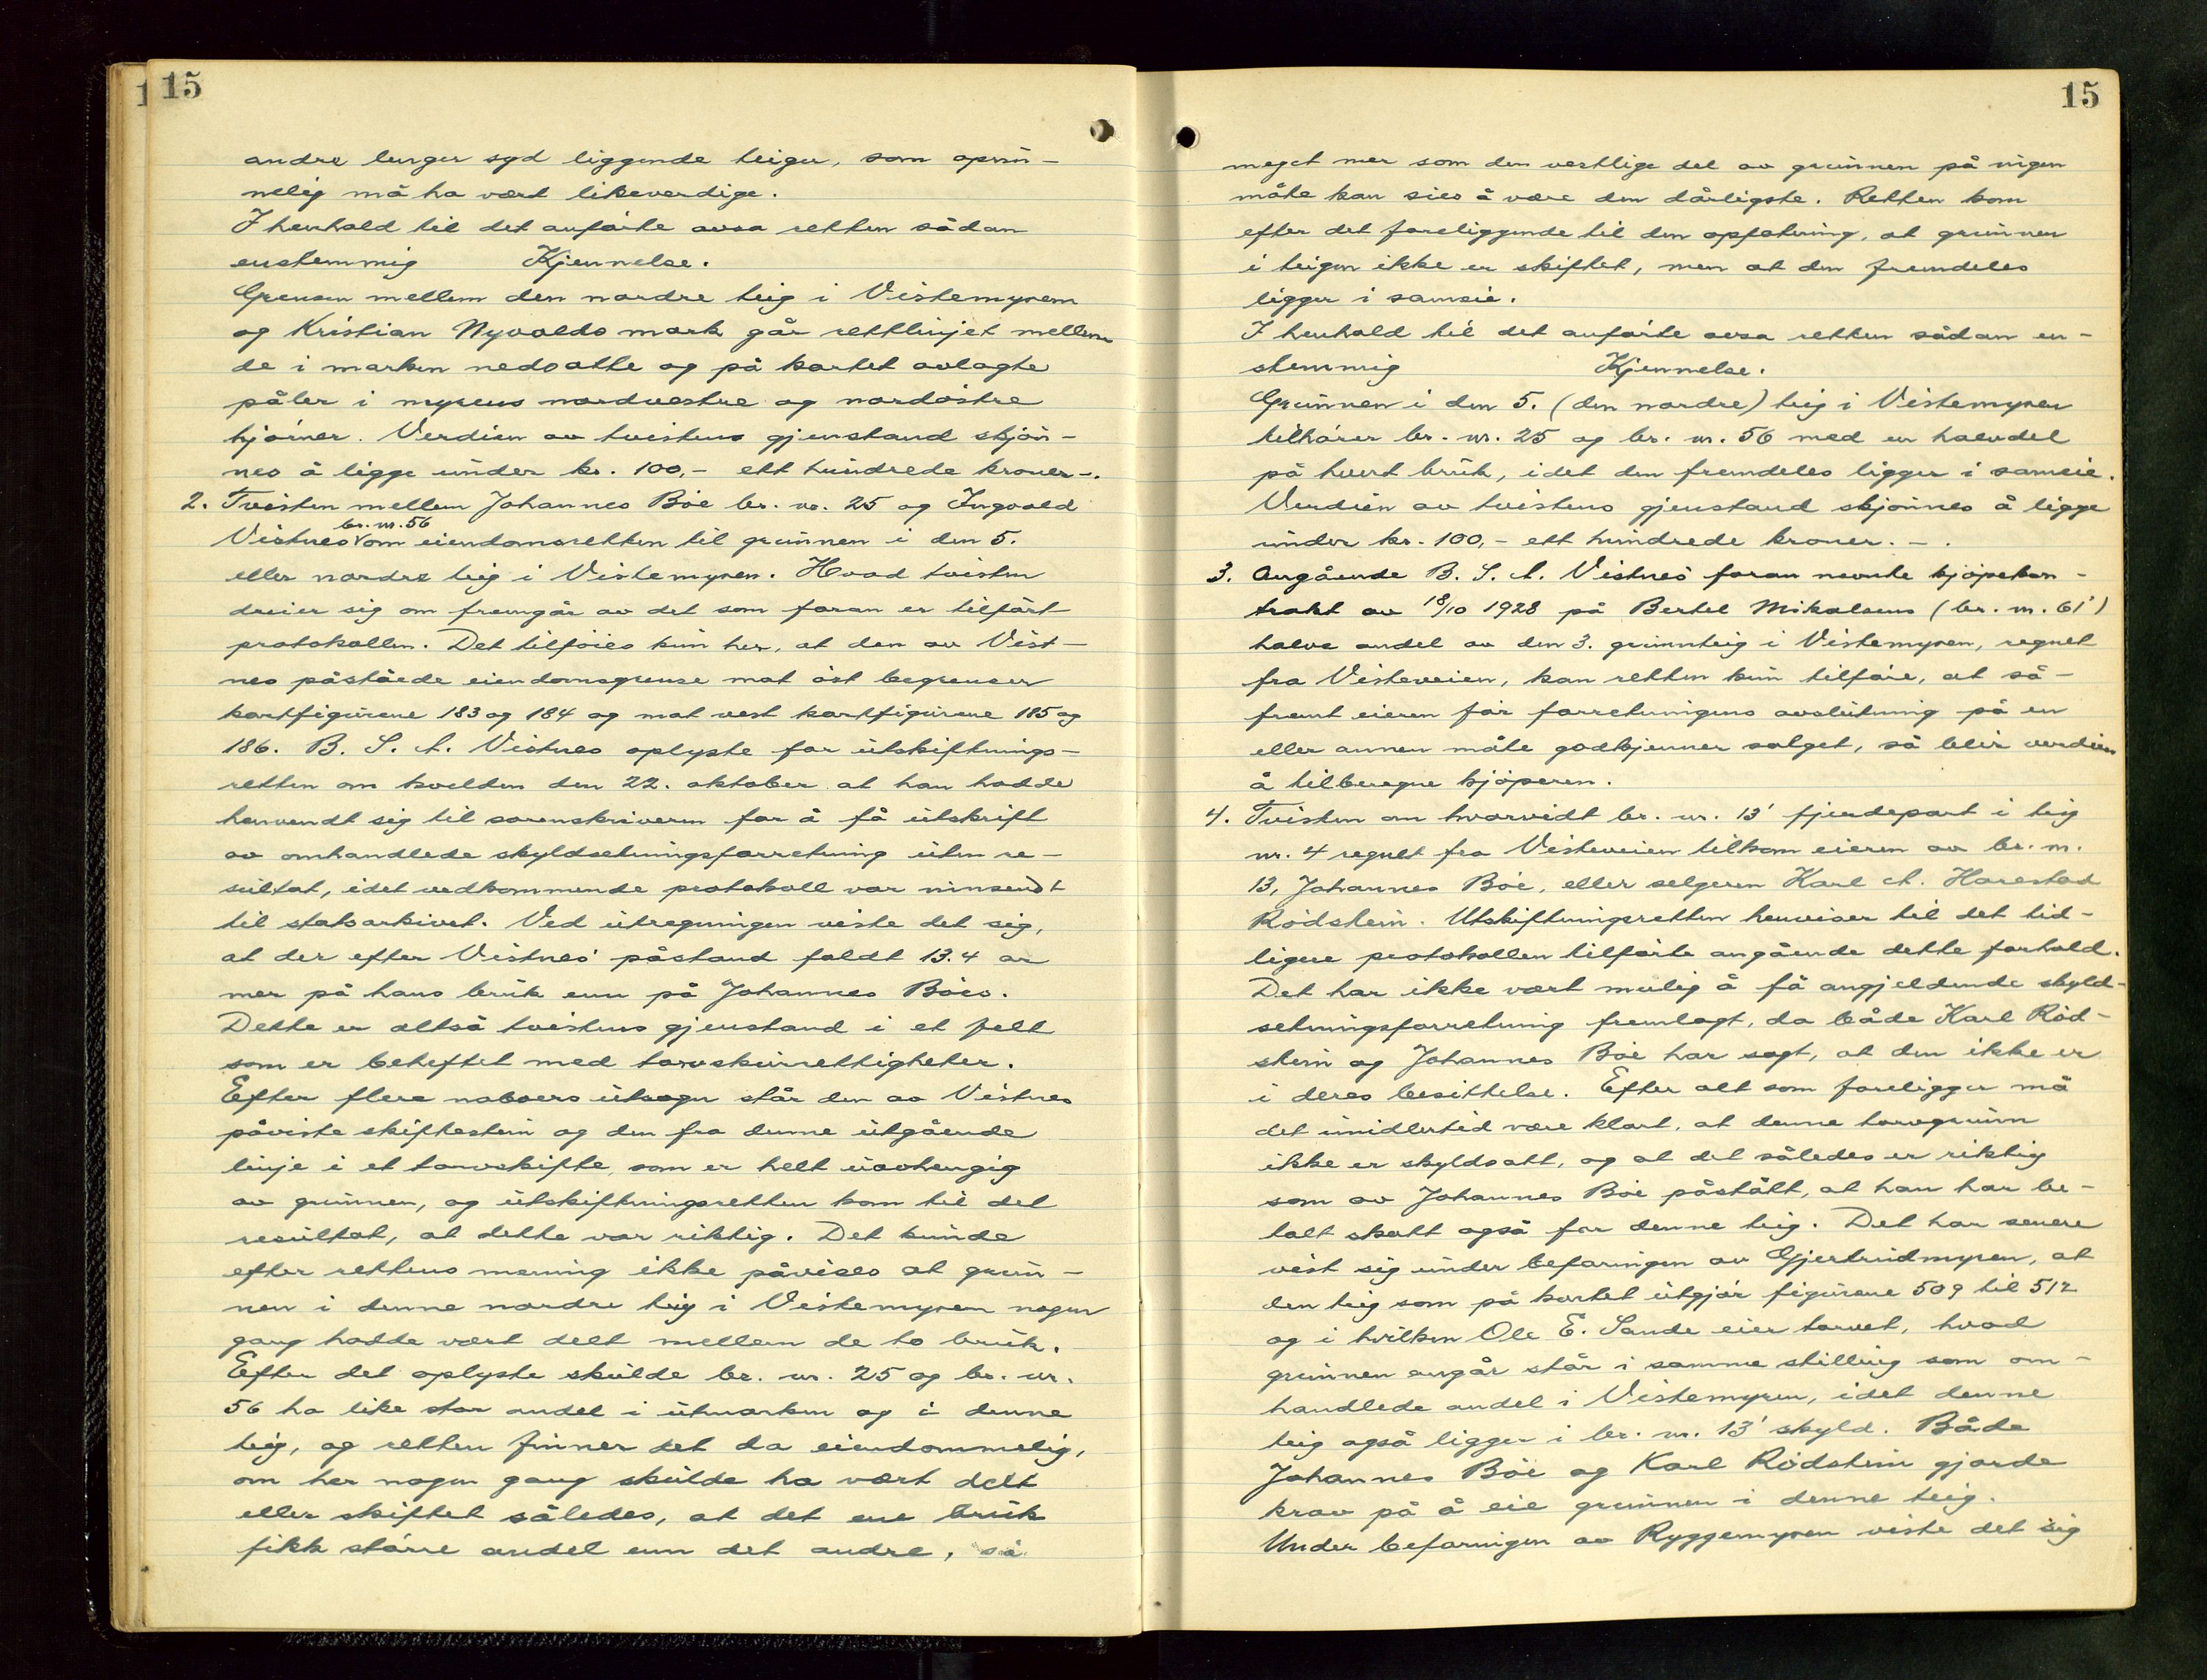 15
andre lenger syd liggende teiger, som oprin-
nelig må ha vært likeverdige.
I henhold til det anførte avsa retten sådan
enstemmig Kjennelse.
Grensen mellem den nordre teig i Vistemyren
og Kristian Nyvolds mark går rettlinjet mellem
de i marken nedsatte og på kartet avlagte
påler i myrens nordvestre og nordøstre
hjørner. Verdien av tvistens gjenstand skjøn-
nes å ligge under kr. 100,- ett hundrede kroner-.
2. Tvisten mellem Johannes Bøe br. nr. 25 og Ingvald
br. nr. 56
Vistnes om eiendomsretten til grunnen i den 5.
eller nordre teig i Vistemyren. Hvad tvisten
dreier sig om fremgår av det som foran er tilført
protokollen. Det tilføies kun her, at den av Vist-
nes påståede eiendomsgrense mot øst begrenser
kartfigurene 183 og 184 og mot vest kartfigurene 185 og
186. B. S. A. Vistnes oplyste for utskiftnings-
retten om kvelden den 22. oktober at han hadde
henvendt sig til sorenskriveren for å få utskrift
av omhandlede skyldsetningsforretning uten re-
sultat, idet vedkommende protokoll var innsendt
til statsarkivet. Ved utregningen viste det sig,
at der efter Vistnes' påstand faldt 13.4 ar
mer på hans bruk enn på Johannes Bøes.
Dette er altså tvistens gjenstand i et felt
som er beheftet med torvskurrettigheter.
Efter flere naboers utsagn står den av Vistnes
påviste skiftestein og den fra denne utgående
linje i et torvskifte, som er helt uavhengig
av grunnen, og utskiftningsretten kom til det
resultat, at dette var riktig. Det kunde
efter rettens mening ikke påvises at grun-
nen i denne nordre teig i Vistemyren nogen
gang hadde vært delt mellem de to bruk.
Efter det oplyste skulde br. nr. 25 og br. nr.
56 ha like stor andel i utmarken og i denne
teig, og retten finner det da eiendommelig,
om her nogen gang skulde ha vært delt
eller skiftet således, at det ene bruk
fikk større andel enn det andre, så
15
meget mer som den vestlige del av grunnen på ingen
måte kan sies å være den dårligste. Retten kom
efter det foreliggende til den opfatning, at grunnen
i teigen ikke er skiftet, men at den fremdeles
ligger i sameie.
I henhold til det anførte avsa retten sådan en-
stemmig Kjennelse.
Grunnen i den 5. (den nordre) teig i Vistemyren
tilhører br. nr. 25 og br. nr. 56 med en halvdel
på hvert bruk, idet den fremdeles ligger i sameie.
Verdien av tvistens gjenstand skjønnes å ligge
under kr. 100,- ett hundrede kroner. -.
3. Angående B. S. A. Vistnes' foran nevnte kjøpekon-
trakt av 18/10 1928 på Bertel Mikalsens (br. nr. 61')
halve andel av den 3. grunnteig i Vistemyren, regnet
fra Visteveien, kan retten kun tilføie, at så-
fremt eieren før forretningens avslutning på en
eller annen måte godkjenner salget, så blir verdien
å tilberegne kjøperen.
4. Tvisten om hvorvidt br. nr. 13' fjerdepart i teig
nr. 4 regnet fra Visteveien tilkom eieren av br. nr.
13, Johannes Bøe, eller selgeren Karl A. Harestad
Rødstein. Utskiftningsretten henviser til det tid-
ligere protokollen tilførte angående dette forhold.
Det har ikke vært mulig å få angjeldende skyld-
setningsforretning fremlagt, da både Karl Rød-
stein og Johannes Bøe har sagt, at den ikke er
i deres besittelse. Efter alt som foreligger må
det imidlertid være klart, at denne torvgrunn
ikke er skyldsatt, og at det således er riktig
som av Johannes Bøe påstått, at han har be-
talt skatt også for denne teig. Det har senere
vist sig under befaringen av Gjertrudmyren, at
den teig som på kartet utgjør figurene 509 til 512
og i hvilken Ole E. Sande eier torvet, hvad
grunnen angår står i samme stilling som om-
handlede andel i Vistemyren, idet denne
teig også ligger i br. nr. 13' skyld. Både
Johannes Bøe og Karl Rødstein gjorde
krav på å eie grunnen i denne teig.
Under befaringen av Ryggemyren viste det sig